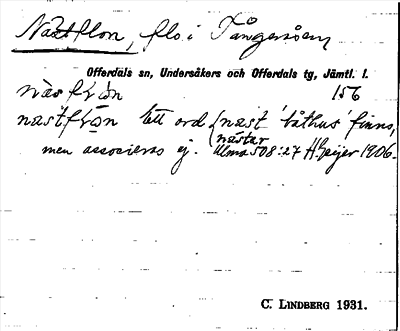 Nästflon, flo i Tångeråsen
Offerdals sn, Undersåkers och Offerdals tg, Jämtl. l.
156
Ett ord (nast 'båthus' finns,
nästar
men associeras ej. Ulma 508:27 H. Geijer 1906.
C. LINDBERG 1931.